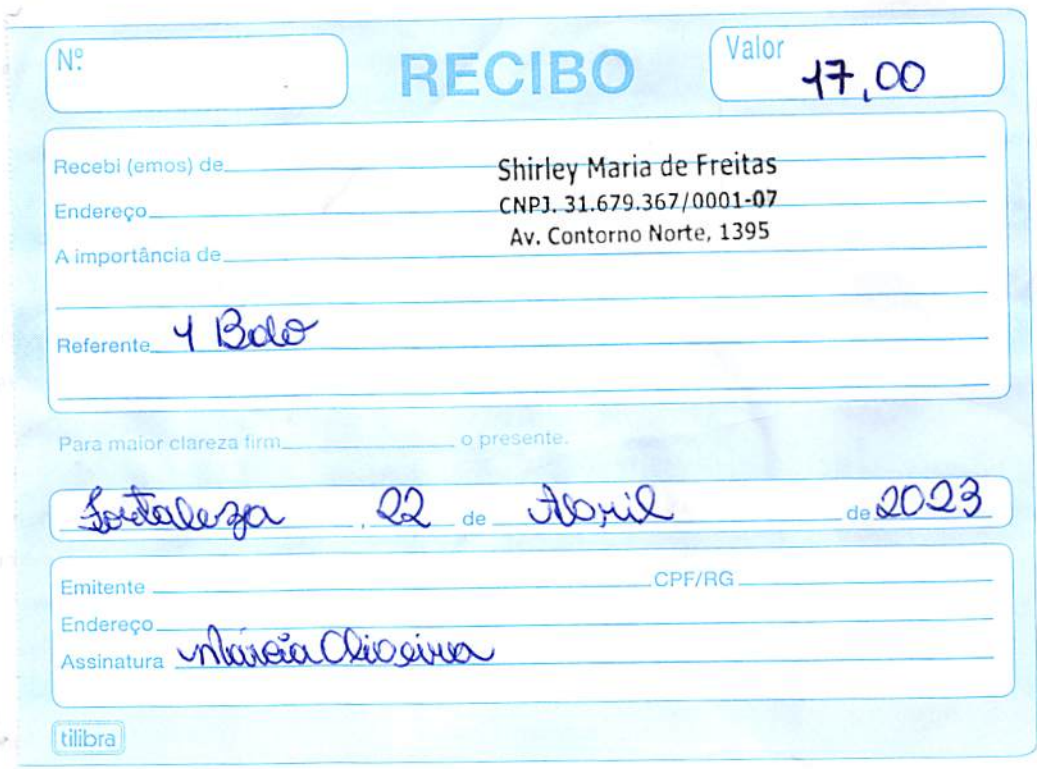 Nº RECIBO Valor 17,00
Recebi (emos) de Shirley Maria de Freitas
Endereço CNPJ. 31.679.367/0001-07
Av. Contorno Norte, 1395
A importância de
Referente 1 Bolo
Para maior clareza firm o presente.
Fortaleza, 22 de Abril de 2023
Emitente CPF/RG
Endereço
Assinatura Márcia Oliveira
tilibra